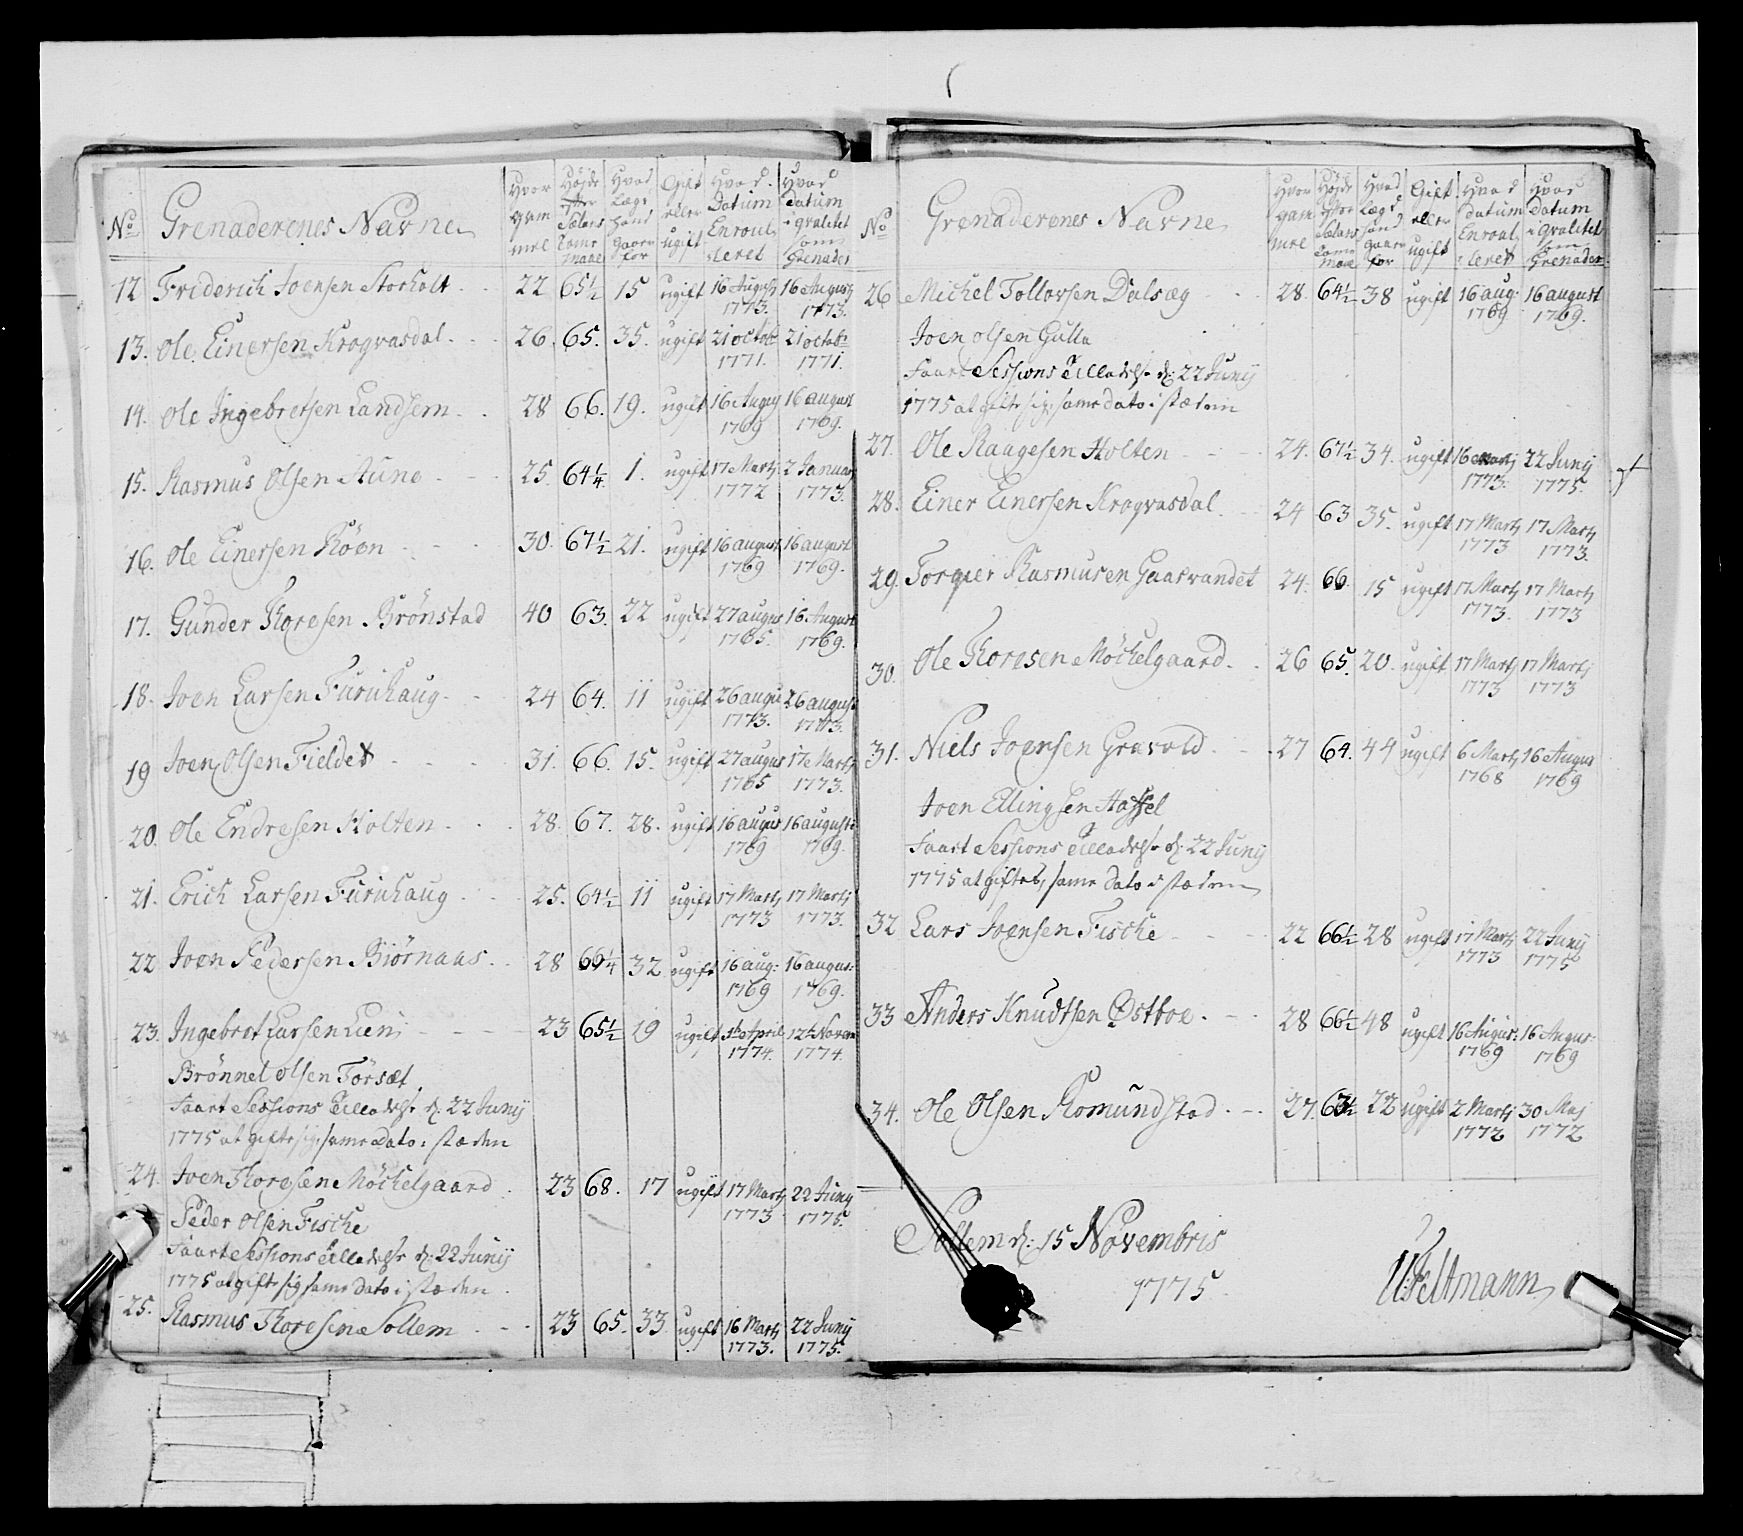 No Grenaderenes Navne Hvor gammel Højde efter Sælans Tomme maal Hvad Lægs hand gaaer for Gift eller ugift Hvad Datum Enroulleret Hvad Datum i qvalitet som Grenader
12 Friderich Joensen Storholt 22 65½ 15 ugift 16 August 1773. 16 August 1773.
13. Ole Einersen Krogvasdal 26. 65. 35. ugift 21 octob: 1771. 21 octob: 1771.
14. Ole Ingebretsen Landsem 28 66. 19. ugift 16 August 1769 16 august 1769.
15. Rasmus Olsen Aune 25. 64¼ 1. ugift 17 Martj 1772 2 Januarj 1773.
16. Ole Einersen Röen 30. 67½ 21. ugift 16 august 1769 16 august 1769.
17. Gunder Thoresen Brönstad 40 63. 22 ugift 27 augus 1765. 16 August 1769.
18. Joen Larsen Furuhaug 24 64. 11 ugift 26 augu 1773. 26 august 1773.
19 Joen Olsen Fieldet 31. 66. 15. ugift 27 augus 1765 17 Martj 1773.
20. Ole Endresen Holten 28. 67. 28. ugift 16 augus 1769 16 august: 1769.
21. Erich Larsen Furuhaug 25. 64½ 11 ugift 17 Martj 1773 17 Martj 1773.
22 Joen Pedersen Biörnaas 28 69¼ 32 ugift 16 aug: 1769 16 augus: 1769.
23. Ingebret Larsen Lien 23 65½ 19 ugift April 1774. 12te Novem 1774.
Brönnel Olsen Törsæt
faaet Sessions Tilladelse d: 22 Junij
1775 at gifte sig, same Dato i stæden
24. Joen Thoresen Möchelgaard 23 68. 17 ugift 17 Martj 1773 22 Junij 1775.
Peder Olsen Fische
faaet Sessions Tilladelse d: 22 Junij
1775 at gifte sig same Dato i stæden
25. Rasmus Thoresen Sollem 23 65. 33 ugift 16 Martj 1773. 22 Junij 1775.
No Grenaderenes Navne Hvor gammel Højde efter Sælans Tomme Maal Hvad Lægd hand gaaer for Gift eller ugift Hvad datum Enroulleret Hvad Datum i qvalitet som Grenader
26 Michel Tollovsen Dalsæg 28. 64½ 38 ugift 16 aug: 1769 16 august 1769.
Joen Olsen Gulla
faaet Sessions Tilladelse d: 22 Junij
1775 at gifte sig, same dato i stæden
27. Ole Raagesen Holten 24. 67½ 34. ugift 16 Martj 1773. 22 Junij 1775.
28. Einer Einersen Krogvasdal 24 63 35. ugift 17 Martj 1773 17 Martj 1773.
29. Torgier Rasmusen Gaasvandet 24. 66. 15 ugift 17 Martj 1773. 17 Martj 1773
30. Ole Thoresen Möchelgaard 26 65. 20. ugift 17 Martj 1773 17 Martj 1773
31. Niels Joensen Gravold 27 64. 44 ugift 6 Martj 1768 16 Augus 1769
Joen Ellingsen Hassel
faaet Sessions Tilladelse d: 22 Junij
1775 at giftes, same Dato i stæden
32 Lars Joensen Fische 22 66½ 28 ugift 17 Martj 1773 22 Junij 1775
33 Anders Knudtsen Østboe 28 66½ 48 ugift 16 Augus: 1769 16 Augus: 1769
34. Ole Olsen Romundstad 27. 63½ 22 ugift 2 Martj 1772 30 Maj 1772
Sollem d: 15 Novembris
1775.
U: Feltmann